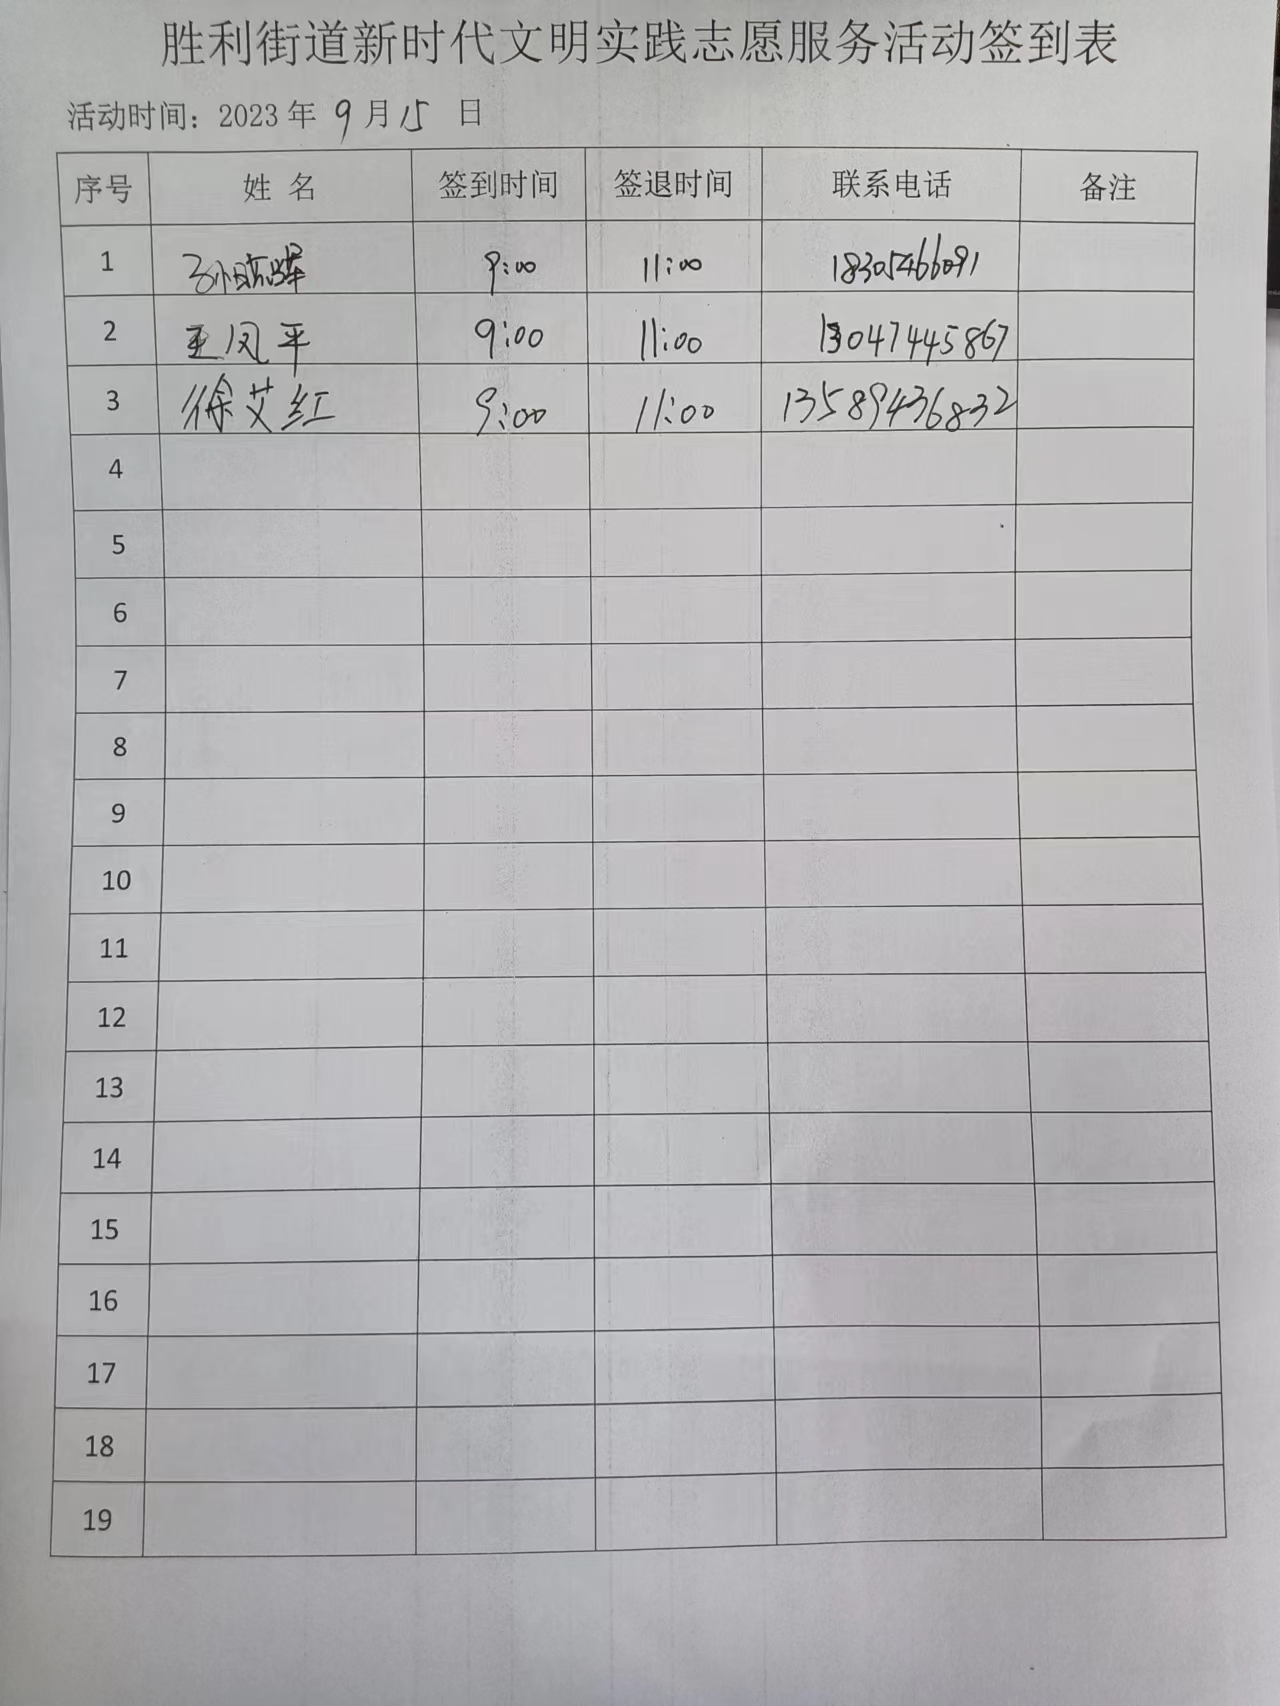 胜利街道新时代文明实践志愿服务活动签到表
活动时间：2023 年 9 月 15 日
序号 姓 名 签到时间 签退时间 联系电话 备注
1 孙晓辉 9:00 11:00 18305466091
2 王凤平 9:00 11:00 13047445867
3 徐艾红 9:00 11:00 13589436832
4
5
6
7
8
9
10
11
12
13
14
15
16
17
18
19